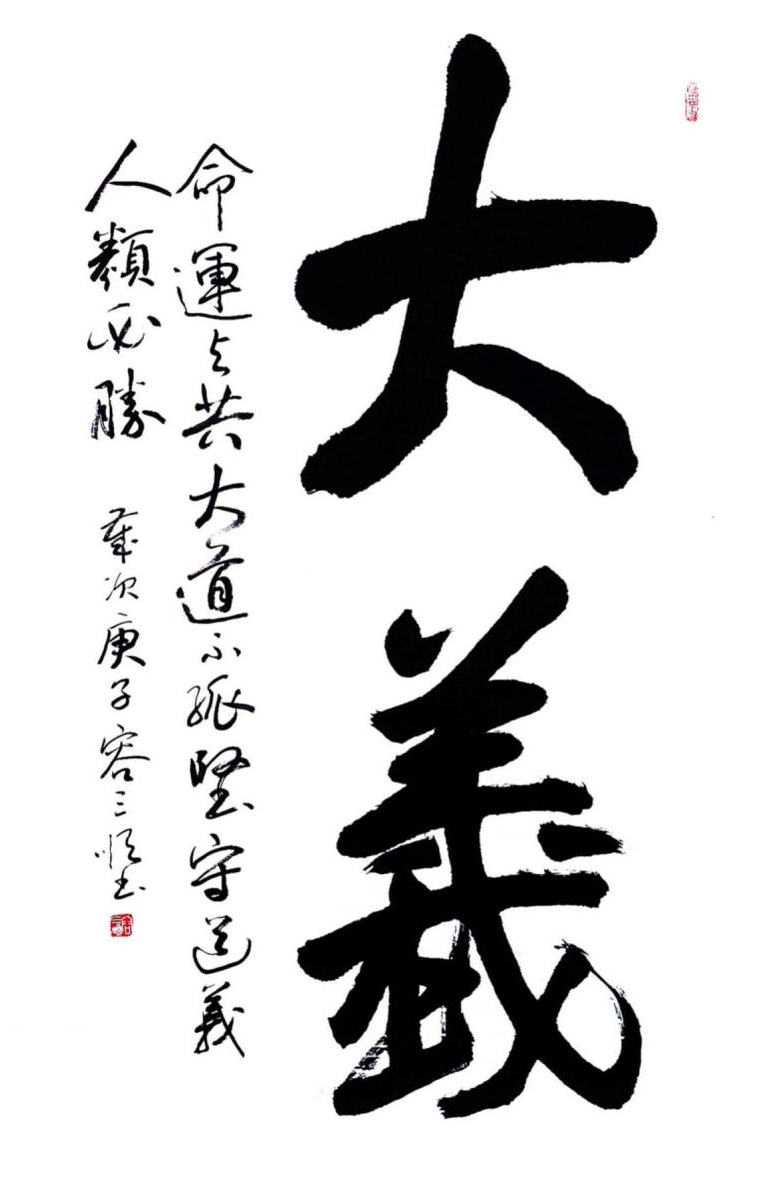 大義
命運与共大道不孤堅守道義
人類必勝
歲次庚子容三惟书